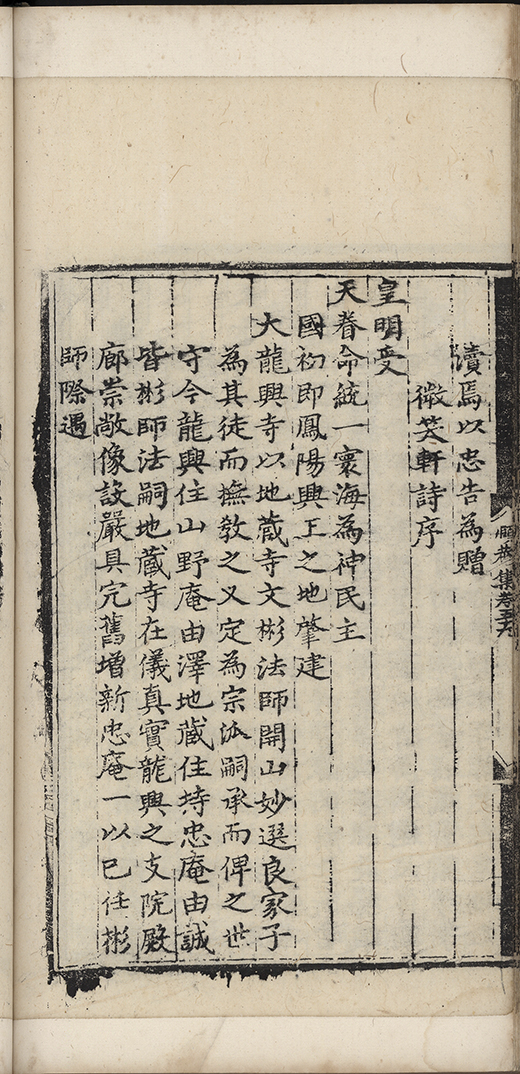 瀆焉以忠告為贈
微笑軒詩序
皇明受
天眷命統一寰海為神民主
國初即鳳陽興王之地肇建
大龍興寺以地蔵寺文彬法師開山妙選良家子
為其徒而撫教之又定為宗派嗣承而俾之世
守今龍興住山野庵由澤地蔵住持忠庵由誠
皆彬師法嗣地蔵寺在儀真實龍興之支院殿
廊崇敞像設嚴具完舊增新忠庵一以已任彬
師際遇
集卷五十九